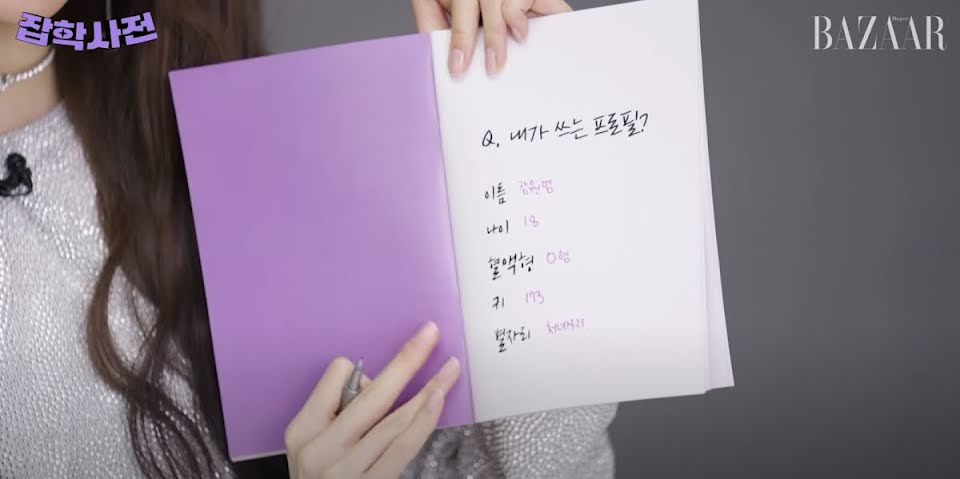 잡학사전
Harper's
BAZAAR
Q. 내가 쓰는 프로필?
이름 장원영
나이 18
혈액형 O형
키 173
별자리 처녀자리